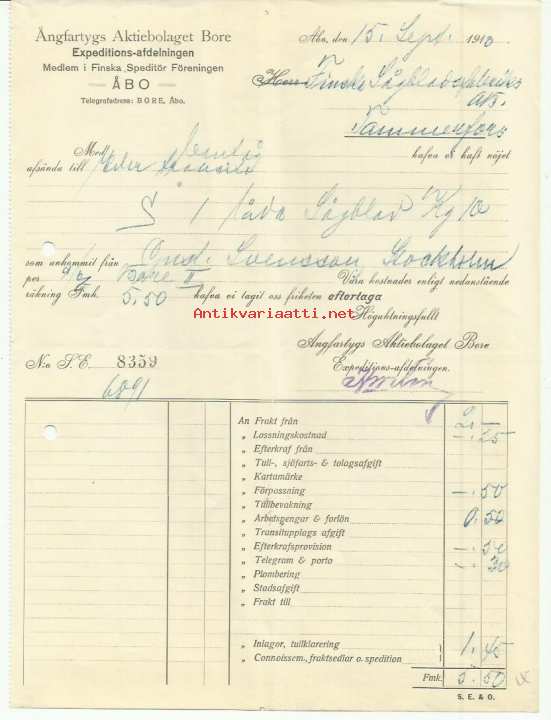 Ångfartygs Aktiebolaget Bore
Expeditions-afdelningen
Medlem i Finska Speditör Föreningen
ÅBO
Telegrafadress: BORE, Åbo.
Åbo, den 15. Sept. 1910
Herr Finska Sågblads fabriks
A/B.
Tammerfors
hafva vi haft nöjet
Med
afsända till Eder
S 1 låda Sågblad Kg 10
som ankommit från Const. Svensson Stockholm
per S/g Bore II Våra kostnader enligt nedanstående
räkning Fmk. 5.50 hafva vi tagit oss friheten efterlaga
Antikvariaatti.net
Högaktningsfullt
Ångfartygs Aktiebolaget Bore
Expeditions-afdelningen.
N:o S.E. 8359
6891
An Frakt från 2. —
„ Lossningskostnad —. 25
„ Efterkraf från
„ Tull-, sjöfarts- & tolagsafgift
„ Kartamärke
„ Förpassning —. 50
„ Tillbevakning
„ Arbetspengar & forlön 0. 50
„ Transitupplags afgift
„ Efterkrafsprovision —. 50
„ Telegram & porto —. 30
„ Plombering
„ Stadsafgift
„ Frakt till
„ Inlagor, tullklarering 1. 45
„ Connoissem., fraktsedlar o. spedition
Fmk: 5. 50
S. E. & O.